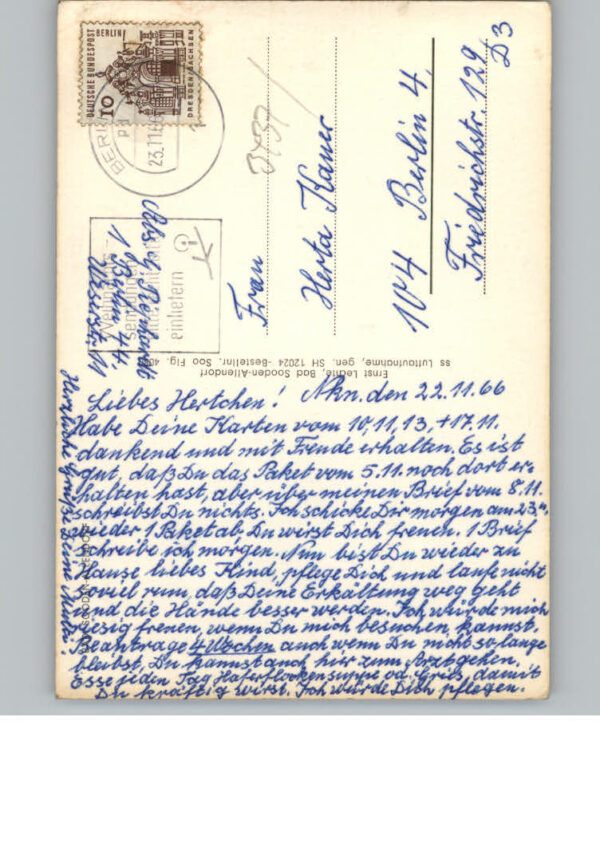 DEUTSCHE BUNDESPOST BERLIN
10
DRESDEN/SACHSEN
BERLIN
23.11.66
Weihnachts-
sendungen
einliefern
Abs. Reinhardt
1 Berlin 44
Weserstr. 11
Frau
Herta Kauer
104 Berlin 4,
Friedrichstr. 129
D3
Ernst Lechte, Bad Sooden-Allendorf
ss Luftaufnahme, gen. SH 12024 - Bestellnr. Soo Fig.
Liebes Hertchen! Nkn. den 22.11.66
Habe Deine Karten vom 10, 11, 13, + 17.11.
dankend und mit Freude erhalten. Es ist
gut, daß Du das Paket vom 5.11. noch dort er-
halten hast, aber über meinen Brief vom 8.11.
schreibst Du nichts. Ich schicke Dir morgen am 23.
wieder 1 Paket ab, Du wirst Dich freuen. 1 Brief
schreibe ich morgen. Nun bist Du wieder zu
Hause liebes Kind, pflege Dich und laufe nicht
soviel rum, daß Deine Erkältung weg geht
und die Hände besser werden. Ich würde mich
riesig freuen, wenn Du mich besuchen kannst.
Beantrage 4 Wochen auch wenn Du nicht so lange
bleibst. Du kannst auch hier zum Arzt gehen.
Esse jeden Tag Haferflockensuppe od. Gries, damit
Du kräftig wirst. Ich würde Dich pflegen.
Herzliche Grüße Deine Mutti!